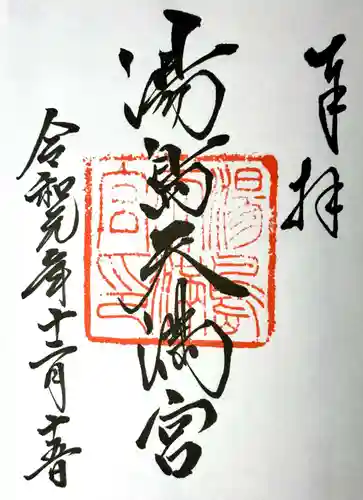 奉拝
湯島天満宮
令和元年十二月十五日